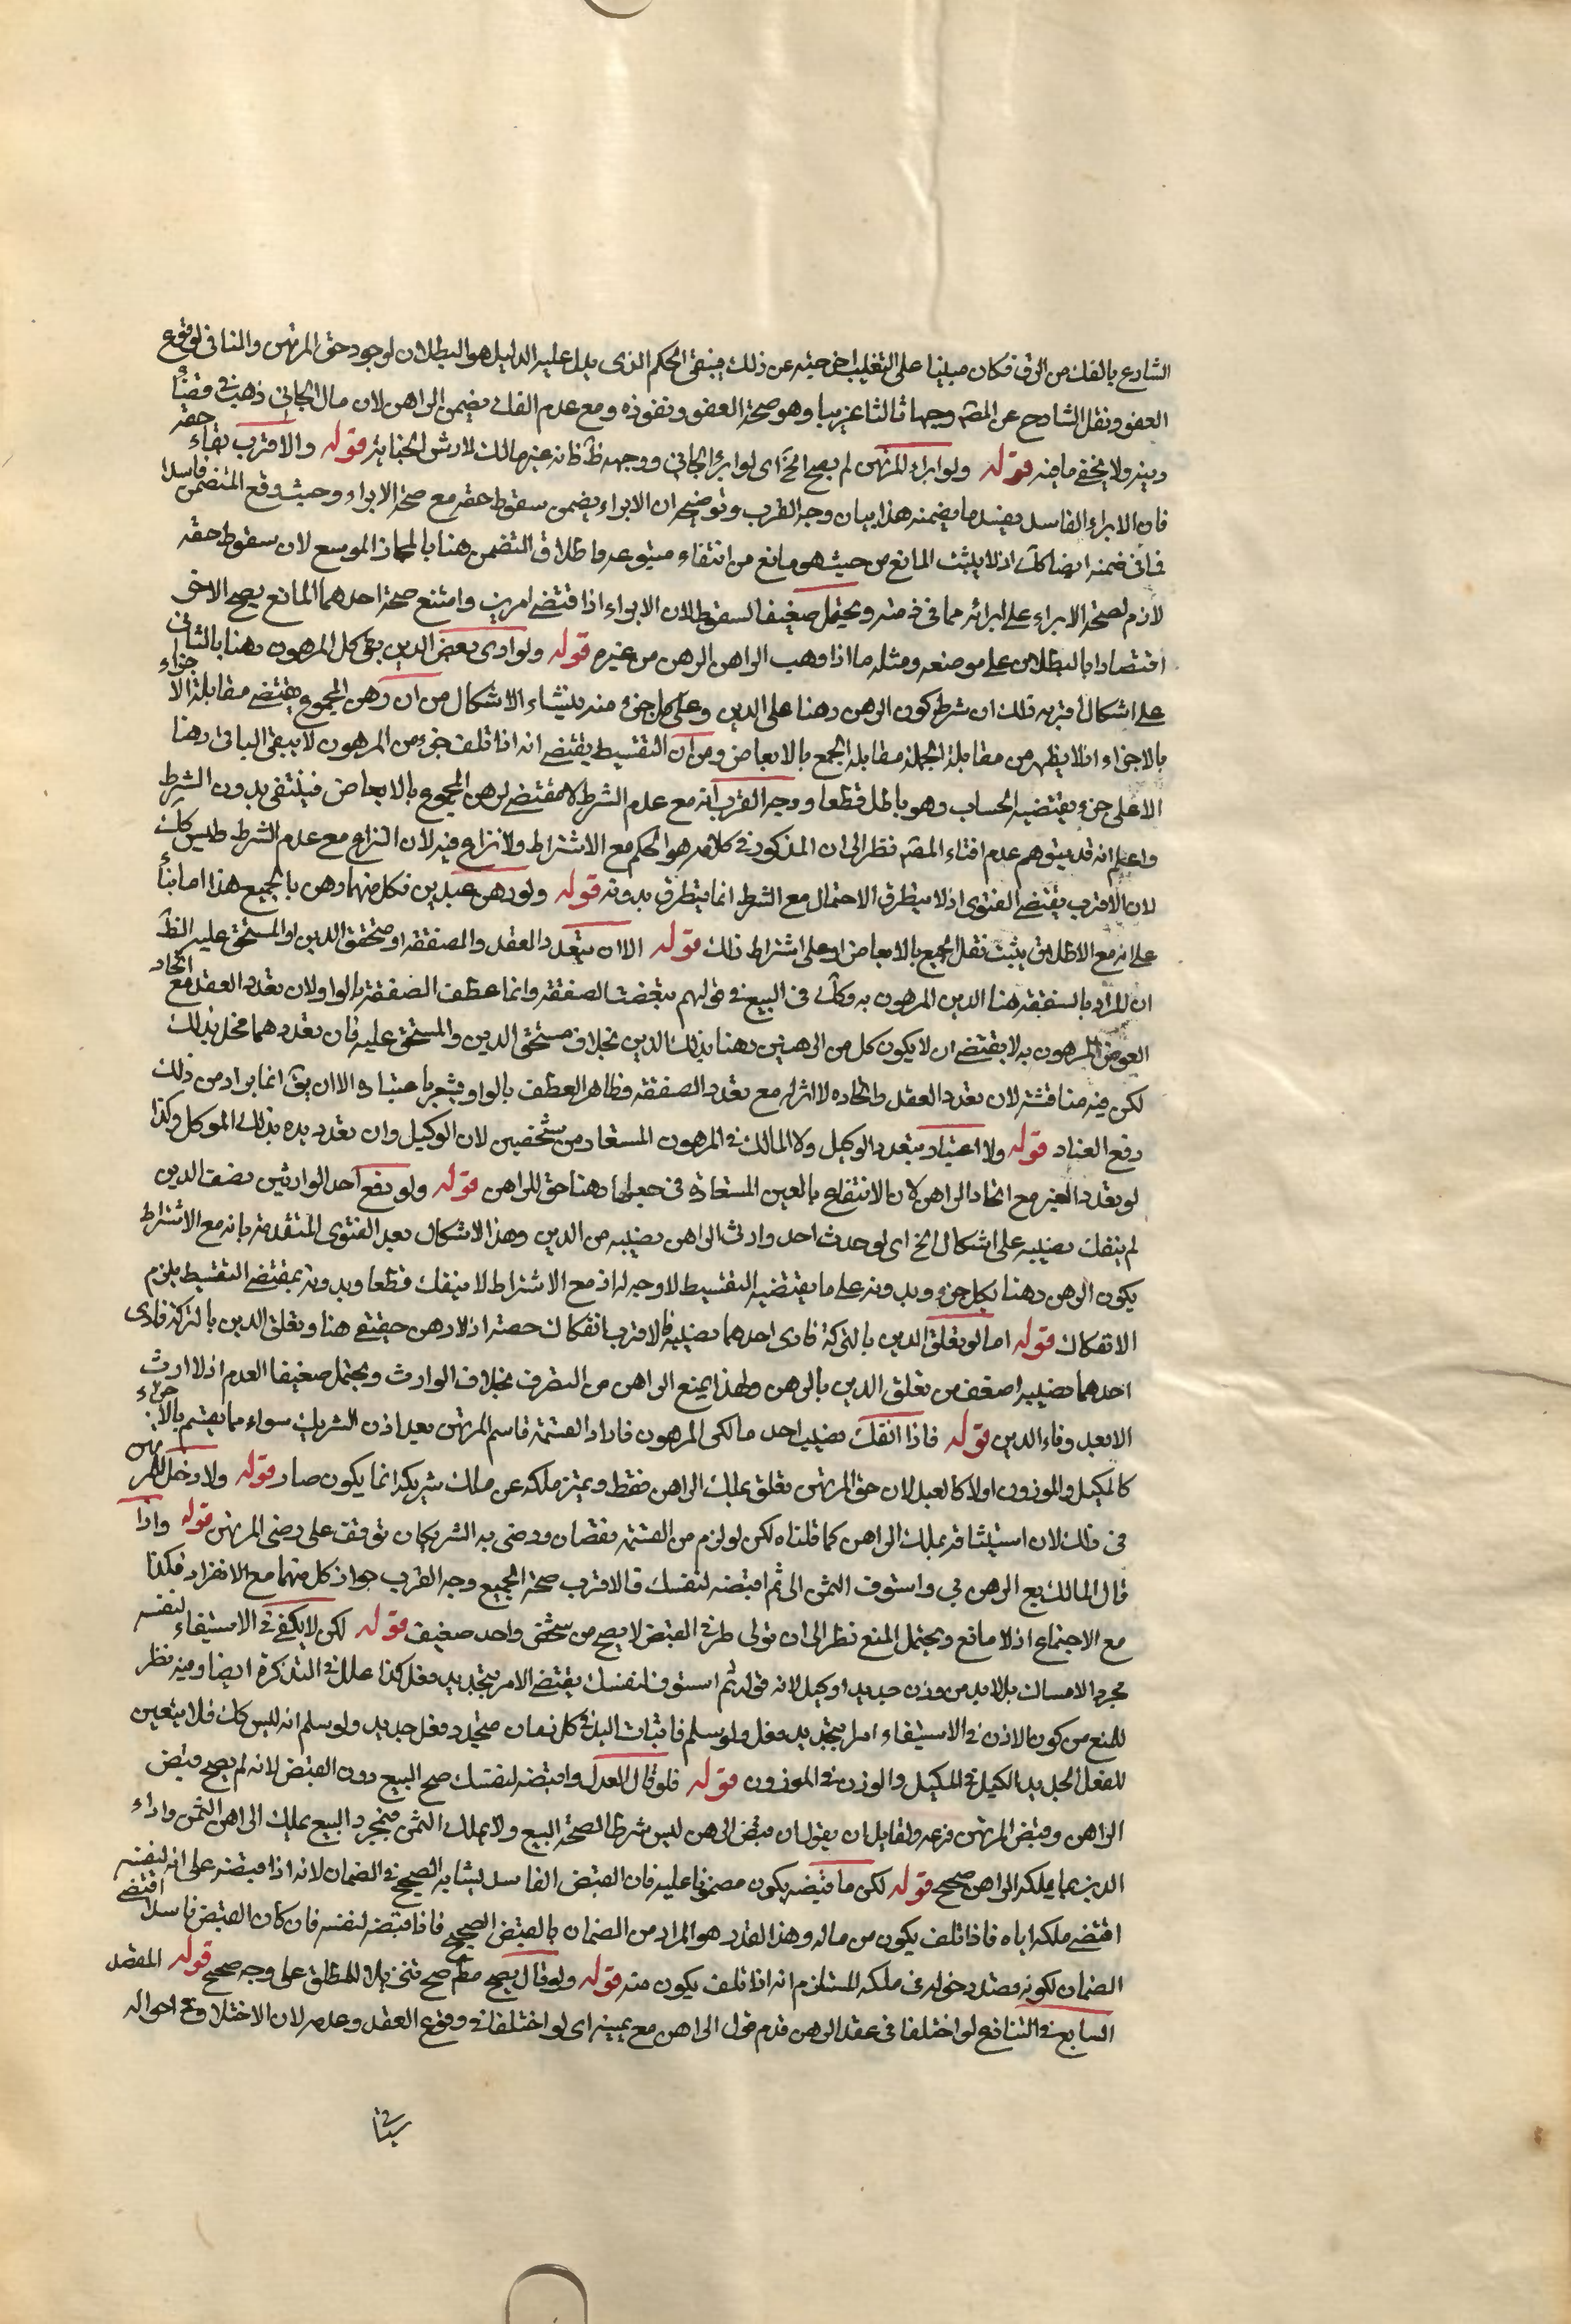 الشارع بالفك من الرق فكان مبنيا على التغليب اخرجته عن ذلك فيبقى الحكم الذى يدل عليه الدليل هو البطلان لوجود حق المرتهن والمنافى لوقوع
العفو ونقل الشارح عن المصـ وجها ثالثا غريبا وهو صحة العفو ونفوذه ومع عدم الفك يضمن الراهن لان مال الجانى ذهب فى قضاء
دينه ولا يخفى ما فيه قوله ولو ابراء المرتهن لم يصح الخ اى لو ابرأ الجانى ووجهه ظ فانه غير مالك لارش الجناية قوله والاقرب بقاء حقه
فان الابراء الفاسد يفسد ما يضمنه هذا بيان وجه القرب وتوضيحه ان الابراء يضمن سقوط حقه مع صحة الابراء وحيث وقع المتضمن فاسدا
فما فى ضمنه ايضا كك اذ لا يثبت المانع من حيث هو مانع من انتفاء متبوعه واطلاق التضمن هنا بالمجاز الموسع لان سقوط حقه
لازم لصحة الابراء على ابرائه مما فى ذمته ويحتمل ضعيفا السقوط لان الابراء اذا اقتضى امرين وامتنع صحة احدهما المانع يصح الاخر
اقتصارا بالبطلان على موضعه ومثله ما اذا وهب الراهن الرهن من غيره قوله ولو ادى بعض الدين بقى كل المرهون رهنا بالثانى
على اشكال اقربه ذلك ان شرط كون الرهن رهنا على الدين وعلى كل جزء منه ينشاء الاشكال من ان رهن المجموع يقتضى مقابلة الاجزاء
بالاجزاء اذ لا يظهر من مقابلة الجملة مقابلة الجمع بالابعاض ومن ان التقسيط يقتضى انه اذا تلف جزء من المرهون لا يبقى الباقى رهنا
الا على جزء يقتضيه الحساب وهو باطل قطعا ووجه القرب انه مع عدم الشرط لا مقتضى لرهن المجموع بالابعاض فينتفى بدون الشرط
واعلم انه قد يتوهم عدم افتاء المصـ نظر الى ان المذكور فى كلامه هو الحكم مع الاشتراط ولا نزاع فيه لان النزاع مع عدم الشرط وليس كك
لان الاقرب يقتضى الفتوى اذ لا يتطرق الاحتمال مع الشرط انما يتطرق بدونه قوله ولو رهن عبدين فكل منهما رهن بالجميع هذا اما بناأ
على انه مع الاطلاق يثبت نقل الجميع بالابعاض او على اشتراط ذلك قوله الا ان يتعدد العقد والصفقة او مستحق الدين او المستحق عليه الظ
ان المراد بالصفقة هنا الدين المرهون به وكك فى البيع فى قولهم تبعضت الصفقة وانما عطف الصفقة بالواو لان تعدد العقد مع اتحاد
العوض المرهون به لا يقتضى ان لا يكون كل من الرهنين رهنا بذلك الدين بخلاف مستحق الدين والمستحق عليه فان تعددهما مخل بذلك
لكن فيه مناقشة لان تعدد العقد واتحاده لا اثر له مع تعدد الصفقة فظاهر العطف بالواو يشعر باعتباره الا ان يق انما يراد من ذلك
دفع العناد قوله ولا اعتبار بتعدد الوكيل ولا المالك فى المرهون المستعار من شخصين لان الوكيل وان تعدد يده بذلك الموكل وكذا
لو تعدد المعير مع اتحاد الراهن لان الانتفاع بالعين المستعارة فى جعلها رهنا حق للراهن قوله ولو دفع احد الوارثين نصف الدين
لم ينفك نصيبه على اشكال الخ اى لو حدث احد وارث الراهن نصيبه من الدين وهذا الاشكال بعد الفتوى المتقدمة بانه مع الاشتراط
يكون الرهن رهنا بكل جزء وبدونه على ما يقتضيه التقسيط لا وجه له اذ مع الاشتراط لا ينفك قطعا وبدونه بمقتضى التقسيط يلزم
الانفكاك قوله اما لو تعلق الدين بالتركة فادى احدهما نصيبه فالاقرب انفكاك حصته اذ لا رهن حقيقى هنا وتعلق الدين بالتركة فادى
احدهما نصيبه اضعف من تعلق الدين بالرهن ولهذا يمنع الراهن من التصرف بخلاف الوارث ويحتمل ضعيفا العدم اذ لا ارث
الا بعد وفاء الدين قوله فاذا انفك نصيب احد مالكى المرهون فاراد القسمة قاسم المرتهن بعد اذن الشريك سواء مما يقسم بالاجزاء
كالمكيل والموزون اولا كالعبد لان حق المرتهن تعلق بملك الراهن فقط وتميز ملكه عن ملك شريكه انما يكون صار قوله ولا دخل للمرتهن
فى ذلك لان استيثاقه بملك الراهن كما قلناه لكن لو لزم من القسمة نقصان ورضى به الشريكان توقفت على رضى المرتهن قوله واذا
قال المالك بع الرهن لى واستوف الثمن الى ثم اقبضه لنفسك فالاقرب صحة الجميع وجه القرب جواز كل منهما مع الانفراد فكذا
مع الاجتماع اذ لا مانع ويحتمل المنع نظرا الى ان تولى طرفى القبض لا يصح من شخص واحد ضعيف قوله لكن لا يكفى فى الاستيفاء لنفسه
مجرد الامساك بل لا بد من وزن جديد او كيل لانه قوله ثم استوف لنفسك يقتضى الامر بتجديد فعل كذا علل فى التذكرة ايضا وفيه نظر
للمنع من كون الاذن فى الاستيفاء امرا بتجديد فعل ولو سلم فاثبات اليد فى كل زمان متجدد فعل جديد ولو سلم انه ليس كك فلا يتعين
للفعل الجديد الكيل فى المكيل والوزن فى الموزون قوله فلو قال العدل واقبضه لنفسك صح البيع دون القبض لانه لم يصح قبض
الراهن وقبض المرتهن فرعه ولقايل ان يقول ان قبض الراهن ليس شرطا لصحة البيع ولا بملك الثمن فبمجرد البيع يملك الراهن الثمن واداء
الدين بما يملكه الراهن صحيح قوله لكن ما قبضه يكون مضمونا عليه فان القبض الفاسد يشابه الصحيح فى الضمان لانه اذا قبضه على انه لنفسه
اقتضى ملكه اياه فاذا تلف يكون من ماله وهذا القدر هو المراد من الضمان بالقبض الصحيح فاذا قبضه لنفسه فان كان القبض فاسدا اقتضى
الضمان لكونه قصد دخوله فى ملكه المستلزم انه اذا تلف يكون منه قوله ولو قال بصحح مطم صح تنزيلا للمطلق على وجه صحيح قوله المقصد
السابع فى التنازع لو اختلفا فى عقد الرهن قدم قول الراهن مع يمينه اى لو اختلفا فى وقوع العقد وعدمه لان الاختلاف فى احواله